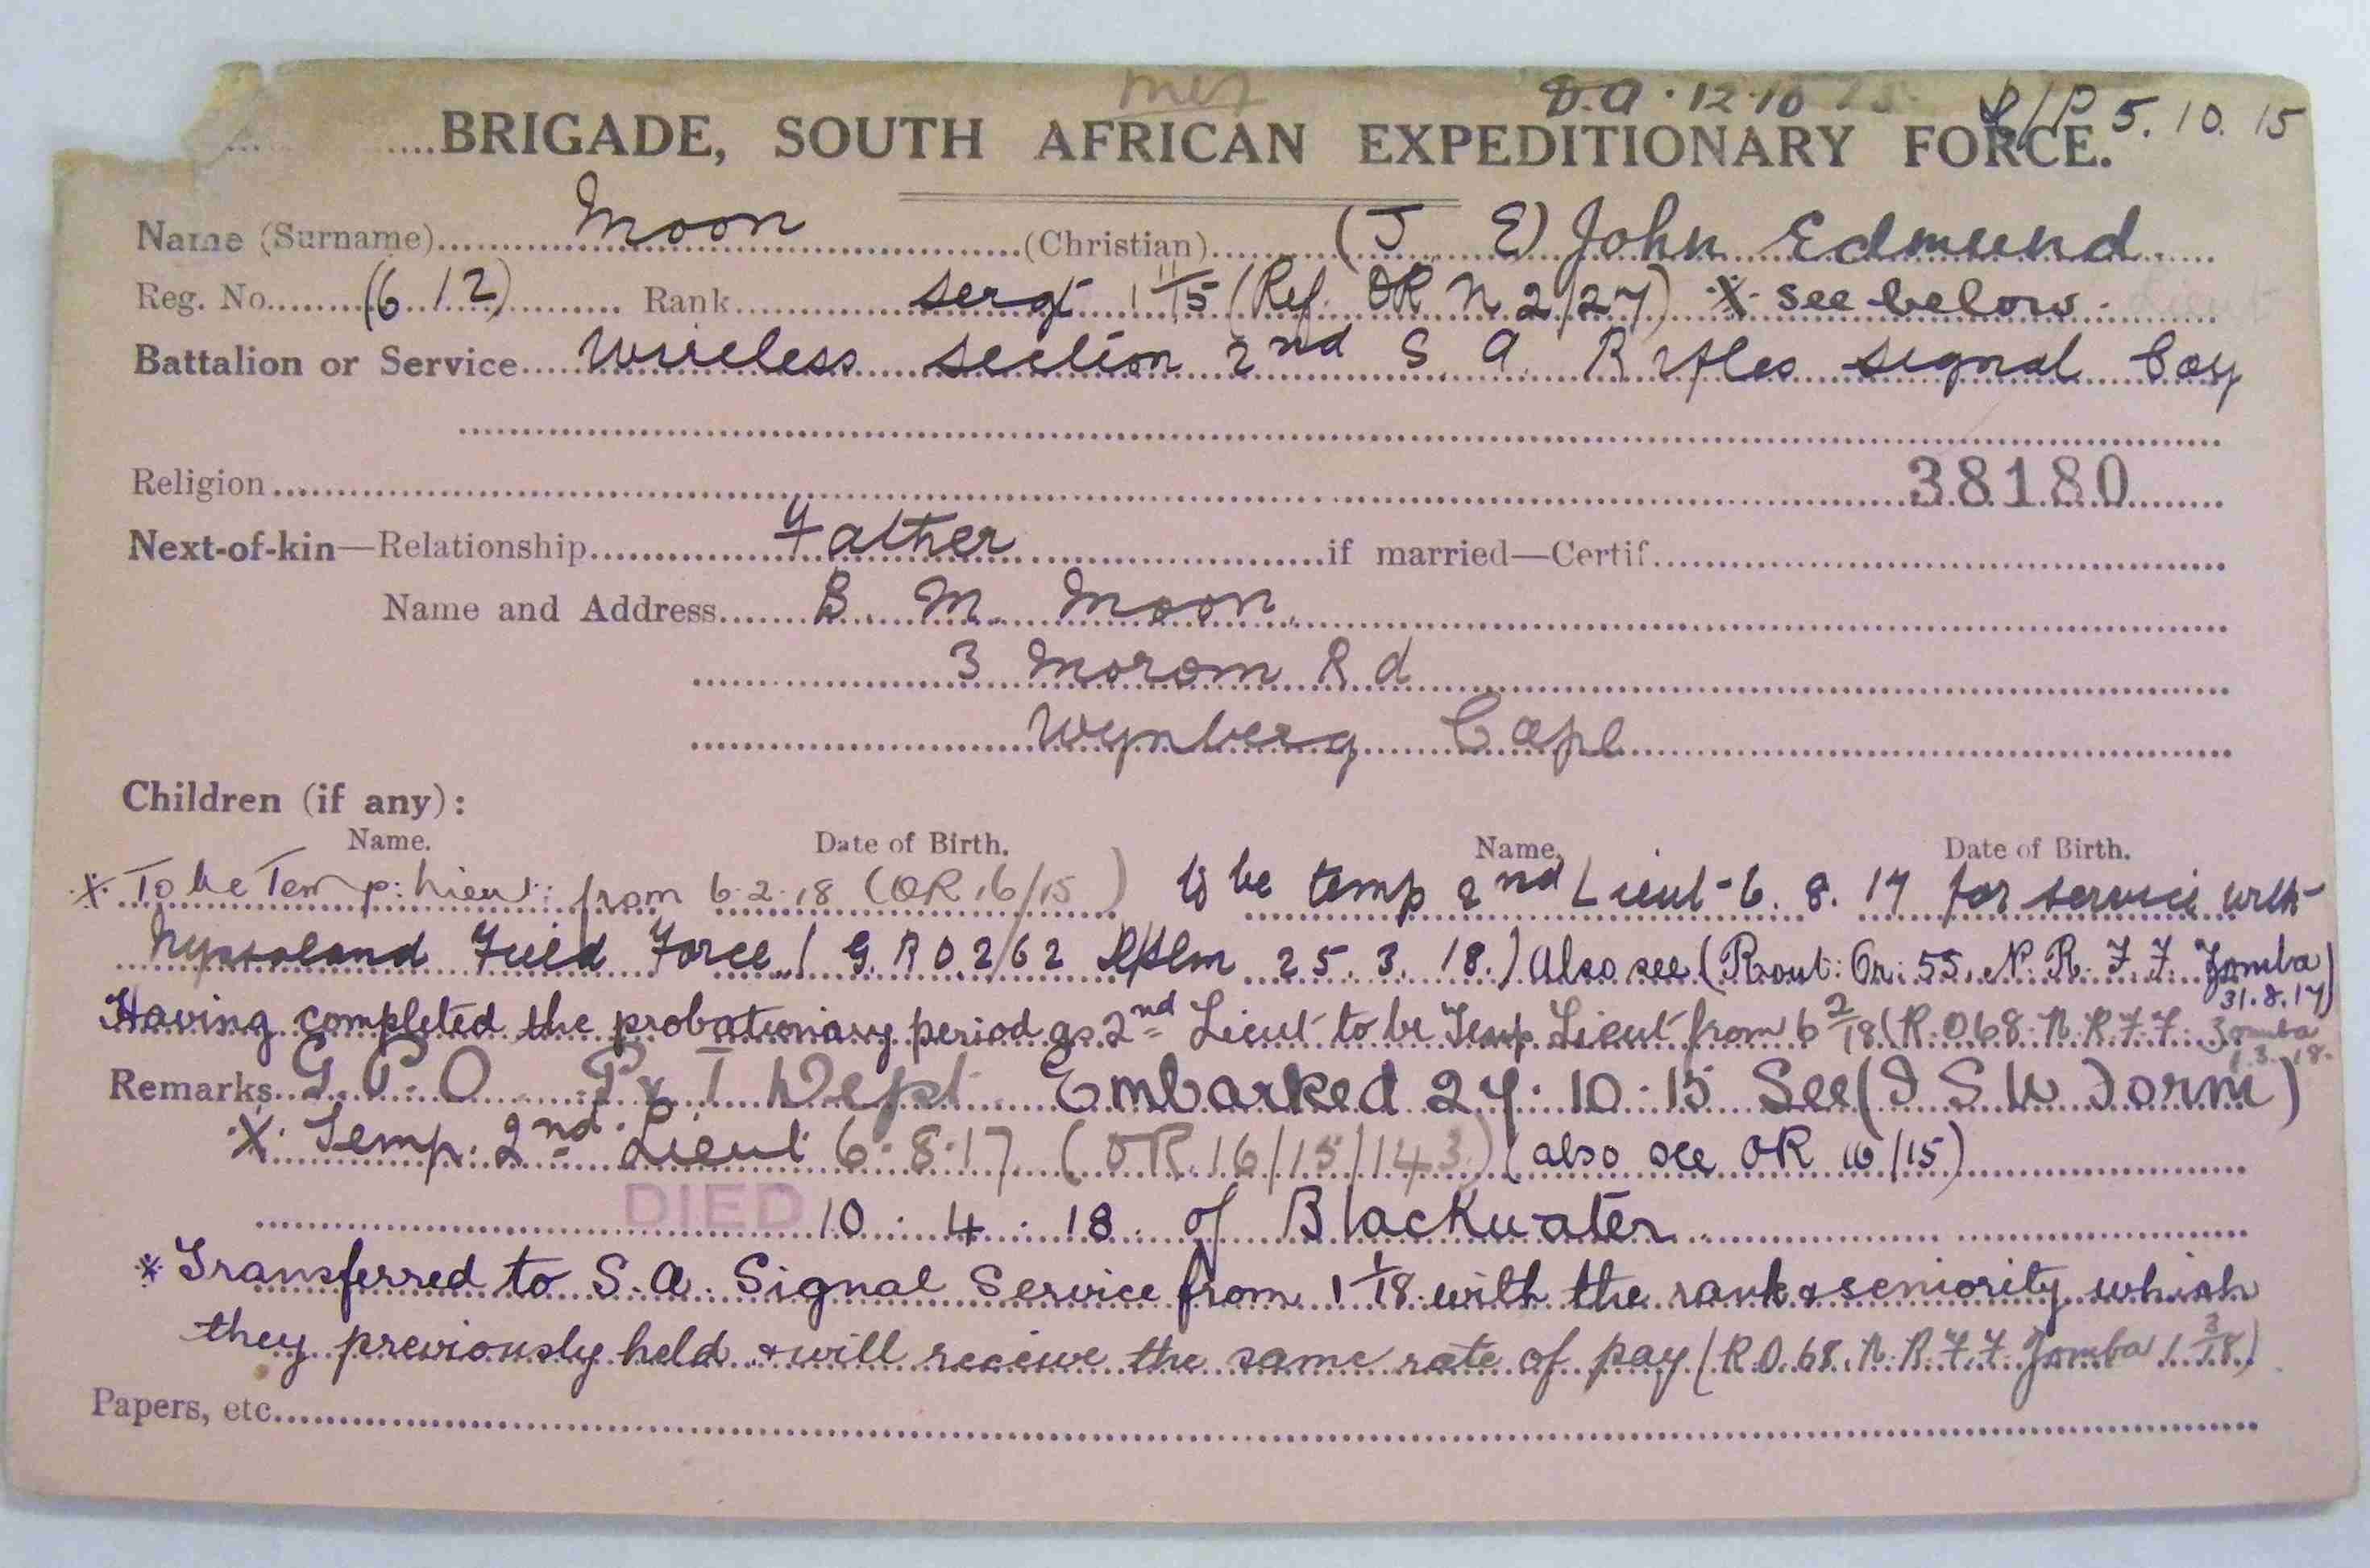 D.A. 12.10 15. D/P 5.10.15
....BRIGADE, SOUTH AFRICAN EXPEDITIONARY FORCE.
Name (Surname) Moon (Christian) (J E) John Edmund
Reg. No. (612) Rank Sergt 1 11/15 (Ref. OR N 2/27) X see below.
Battalion or Service Wireless section 2nd S. A. Rifles signal Coy
Religion 38180
Next-of-kin—Relationship Father if married—Certif.
Name and Address B. M. Moon.
3 Morom Rd
Wynberg Cape
Children (if any):
Name. Date of Birth. Name. Date of Birth.
X To be Temp: Lieut: from 6.2.18 (OR 16/15) to be temp 2nd Lieut 6. 8. 17 for service with
Nyasaland Field Force (G.R.O 262 D/Slm 25. 3. 18.) Also see (Rout: Or: 55. N. R. F. F. Zomba 31.8.17)
Having completed the probationary period as 2nd Lieut to be Temp Lieut from 6 2/18 (R.O 68. N. R. F. F. Zomba 1.3.18.
Remarks G. P. O. P & T Dept Embarked 27:10:15 See (I S W Form)
X Temp: 2nd Lieut 6.8.17 (OR.16/15/143) (also see OR 16/15)
DIED 10 : 4 : 18 of Blackwater
* Transferred to S.A. Signal Service from 1 1/18 with the rank & seniority which
they previously held & will receive the same rate of pay (R.O.68. N. R. F. F. Zomba 1 3/18.)
Papers, etc.